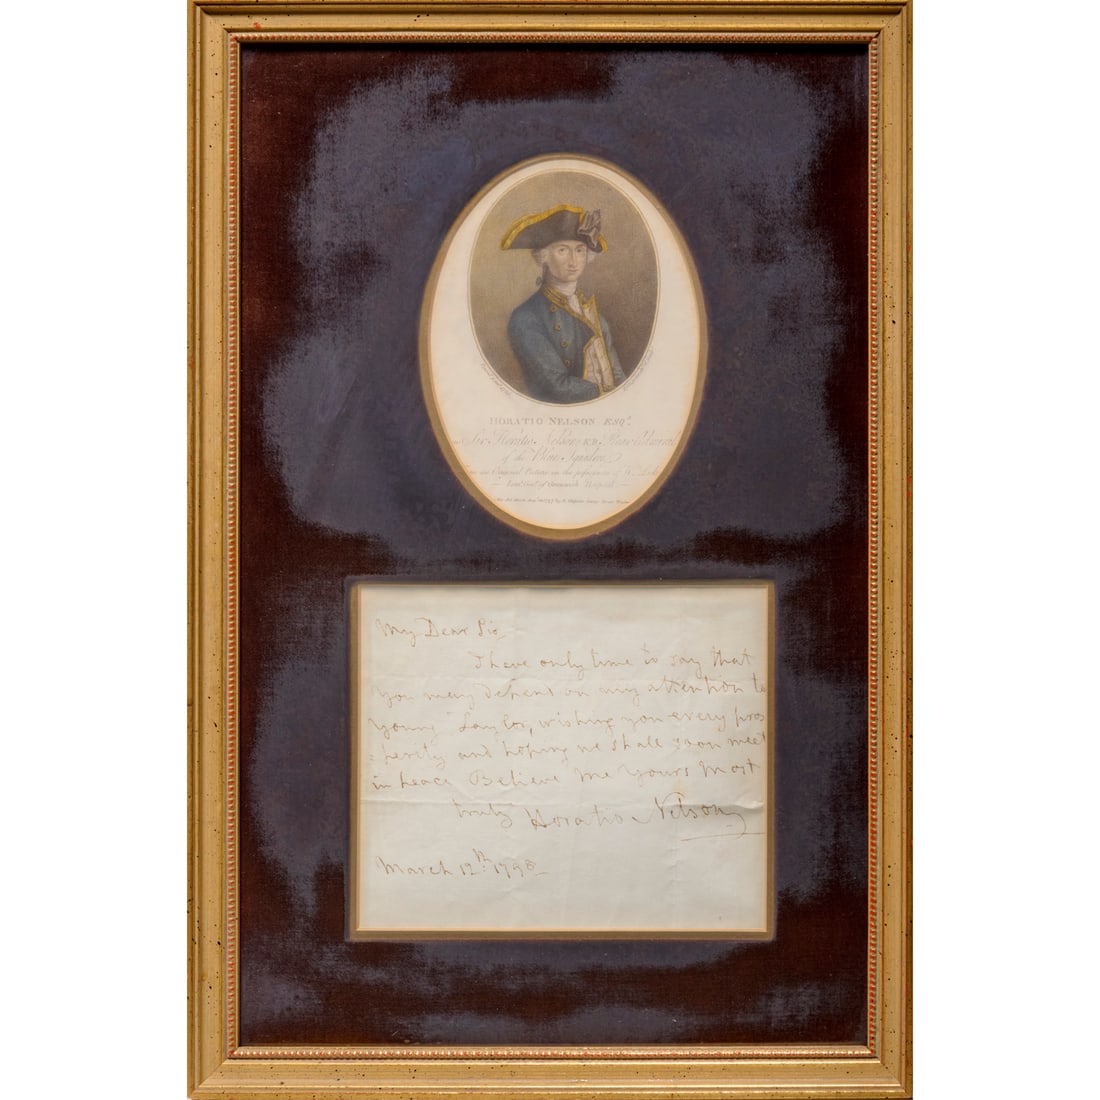 HORATIO NELSON ESQr.
Sir Horatio Nelson K.B. Rear Admiral
of the Blue Squadron
an Original Picture in the possession of
Lieut. Govr. of Greenwich Hospital
My Dear Sir
I have only time to say that
you may depend on my attention to
young Taylor, wishing you every pros
perity and hoping we shall soon meet
in peace Believe me Yours Most
truly Horatio Nelson
March 12th: 1798